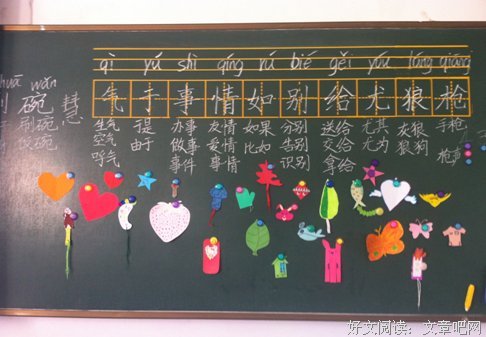 huā wǎn qì yú shì qíng rú bié gěi yóu láng qiāng
刷 碗 慧 气 于 事 情 如 别 给 尤 狼 枪
刷碗 生气 于是 办事 友情 如果 分别 送给 尤其 灰狼 手枪
饭碗 空气 由于 做事 爱情 比如 告别 交给 尤为 狼狗
呼气 事件 事情 识别 拿给 枪声
好文阅读：文章吧网